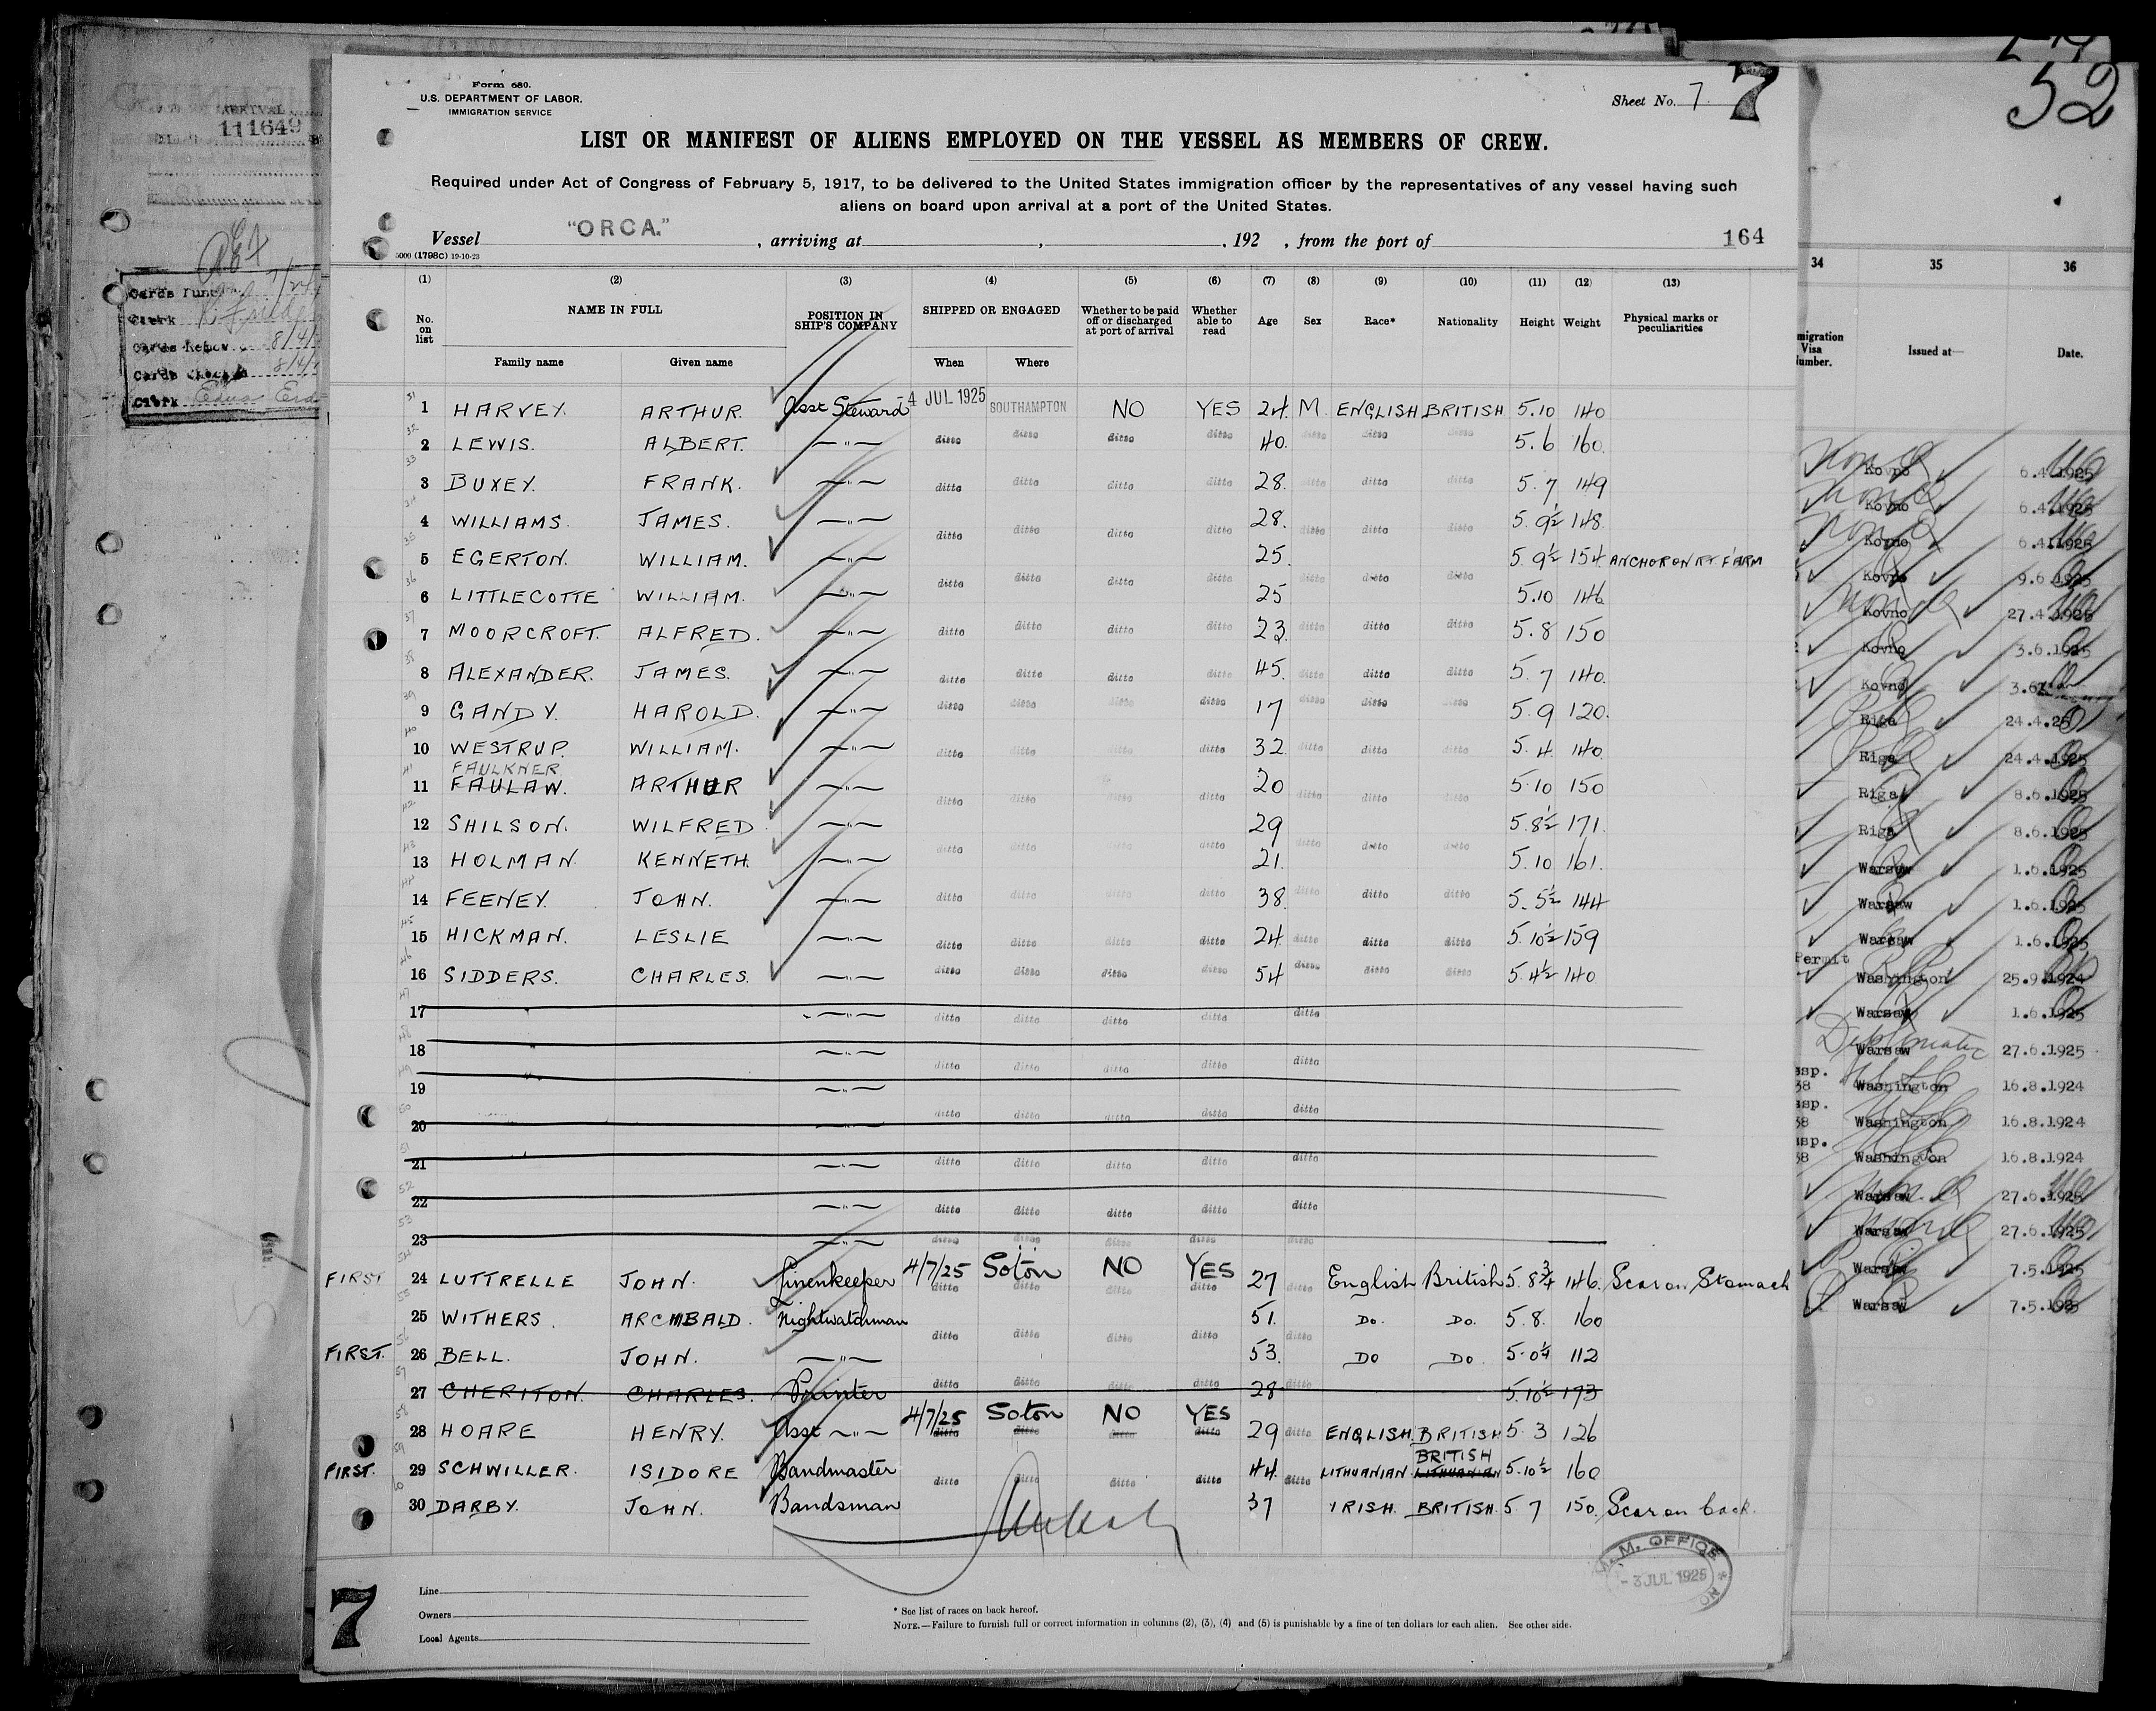 Form 680.
U.S. DEPARTMENT OF LABOR.
IMMIGRATION SERVICE
Sheet No. 7 7
52
ARRIVAL
111649
LIST OR MANIFEST OF ALIENS EMPLOYED ON THE VESSEL AS MEMBERS OF CREW.
Required under Act of Congress of February 5, 1917, to be delivered to the United States immigration officer by the representatives of any vessel having such
aliens on board upon arrival at a port of the United States.
Vessel "ORCA." , arriving at , , 192 , from the port of 164
5000 (1798C) 19-10-23
(1) (2) (3) (4) (5) (6) (7) (8) (9) (10) (11) (12) (13)
No. on list NAME IN FULL POSITION IN SHIP'S COMPANY SHIPPED OR ENGAGED Whether to be paid off or discharged at port of arrival Whether able to read Age Sex Race* Nationality Height Weight Physical marks or peculiarities
Family name Given name When Where
1 HARVEY. ARTHUR. Asst Steward 4 JUL 1925 SOUTHAMPTON NO YES 24. M. ENGLISH BRITISH 5.10 140
2 LEWIS. ALBERT. —"— ditto ditto ditto ditto 40. ditto ditto ditto 5.6 160.
3 BUXEY. FRANK. —"— ditto ditto ditto ditto 28. ditto ditto ditto 5.7 149
4 WILLIAMS. JAMES. —"— ditto ditto ditto ditto 28. ditto ditto ditto 5.9½ 148.
5 EGERTON. WILLIAM. —"— 25. 5 9½ 154. ANCHOR ON RT F'ARM
6 LITTLECOTTE WILLIAM. —"— ditto ditto ditto ditto 25 ditto ditto ditto 5.10 146
7 MOORCROFT. ALFRED. —"— ditto ditto ditto ditto 23. ditto ditto ditto 5.8 150
8 ALEXANDER. JAMES. —"— ditto ditto ditto ditto 45. ditto ditto ditto 5.7 140.
9 GANDY. HAROLD. —"— ditto ditto ditto ditto 17 ditto ditto ditto 5.9 120.
10 WESTRUP. WILLIAM. —"— ditto ditto ditto ditto 32 ditto ditto ditto 5.4 140
FAULKNER
11 FAULAW. ARTHUR —"— ditto ditto ditto ditto 20 ditto ditto ditto 5.10 150
12 SHILSON. WILFRED —"— 29 5.8½ 171.
13 HOLMAN. KENNETH. —"— ditto ditto ditto ditto 21. ditto ditto ditto 5.10 161.
14 FEENEY. JOHN. —"— ditto ditto ditto ditto 38. ditto ditto ditto 5.5½ 144
15 HICKMAN. LESLIE —"— ditto ditto ditto ditto 24. ditto ditto ditto 5.10½ 159
16 SIDDERS. CHARLES. —"— ditto ditto ditto ditto 54 ditto ditto ditto 5.4½ 140
17 —"— ditto ditto ditto ditto ditto
18 —"— ditto ditto ditto ditto ditto
19 —"—
20 —"— ditto ditto ditto ditto ditto
21 —"— ditto ditto ditto ditto ditto
22 —"— ditto ditto ditto ditto ditto
23 —"— ditto ditto ditto ditto ditto
FIRST 24 LUTTRELLE JOHN. Linenkeeper 4/7/25 Soton NO YES 27 ditto English British 5.8¾ 146. Scar on Stomach
25 WITHERS. ARCHIBALD. Nightwatchman 51. Do. Do. 5.8. 160
FIRST. 26 BELL. JOHN. —"— ditto ditto ditto ditto 53. ditto Do Do. 5.0¼ 112
27 CHERITON. CHARLES. Printer ditto ditto ditto ditto 28 ditto 5.10½ 173
28 HOARE HENRY. Asst —"— 4/7/25 Soton NO YES 29 ditto ENGLISH. BRITISH 5 3 126
BRITISH
FIRST. 29 SCHWILLER. ISIDORE Bandmaster ditto ditto ditto ditto 44. ditto LITHUANIAN LITHUANIAN 5.10½ 160
30 DARBY. JOHN. Bandsman 37 IRISH. BRITISH. 5 7 150. Scar on back.
M. OFFICE
- 3 JUL 1925
7
Line
Owners
Local Agents
* See list of races on back hereof.
NOTE.—Failure to furnish full or correct information in columns (2), (3), (4) and (5) is punishable by a fine of ten dollars for each alien. See other side.
34 35 36
migration Visa Number. Issued at— Date.
Kovno 6.4.1925
Kovno 6.4.1925
Kovno 6.4.1925
Kovno 9.6.1925
Kovno 27.4.1925
Kovno 3.6.1925
Kovno 3.6.
Riga 24.4.25
Riga 24.4.1925
Riga 8.6.1925
Riga 8.6.1925
Warsaw 1.6.1925
Warsaw 1.6.1925
Warsaw 1.6.1925
Permit
Washington 25.9.1924
Warsaw 1.6.1925
Diplomatic
Warsaw 27.6.1925
Washington 16.8.1924
Washington 16.8.1924
Washington 16.8.1924
Warsaw 27.6.1925
Warsaw 27.6.1925
Warsaw 7.5.1925
Warsaw 7.5.1925